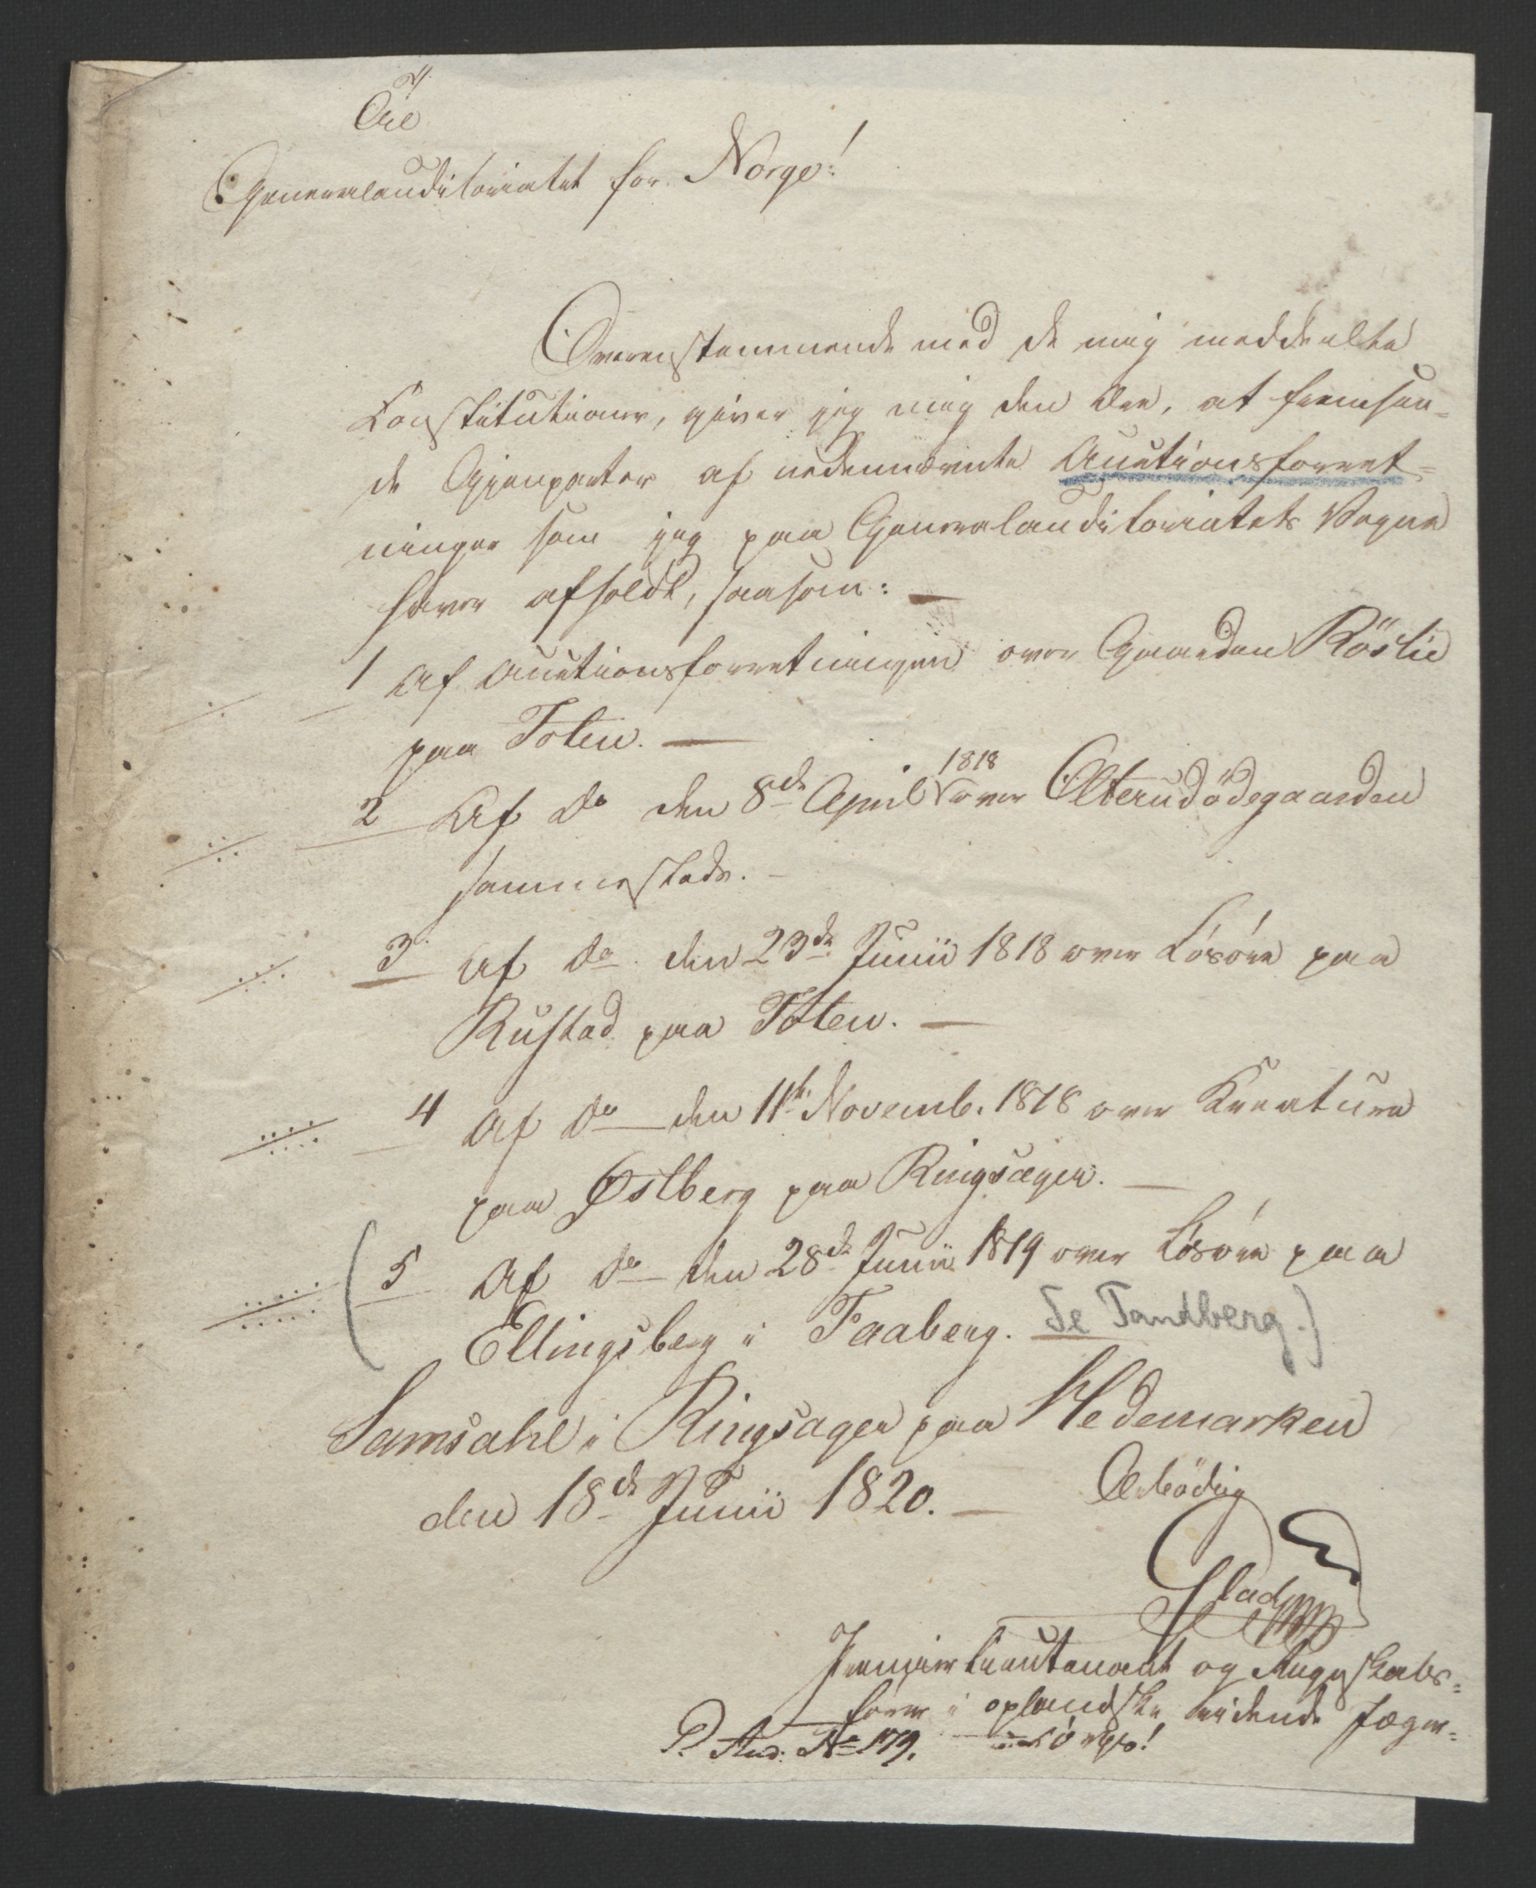 Til
Generalauditoriatet for Norge!
Overensstemmende med de mig meddeelte
Constitutioner, giver jeg mig den Ære, at fremsen-
de Gjenparter af nedennævnte Auctionsforret-
ninger som jeg paa Generalauditoriatets Vegne
haver afholdt, saasom:
1 Af Auctionsforretningen over Gaarden Röslie
paa Toten.
2 Af do den 8de April 1818 over Olterudödegaarden
sammesteds.
3 Af do den 23de Junii 1818 over Lösöre paa
Rustad paa Toten.
4 Af do den 11te Novemb. 1818 over Kreature
paa Østberg paa Ringsager.
(5 Af do den 28de Junii 1819 over Lösöre paa
Ellingsberg i Faaberg. Se Tandberg.)
Samsahl i Ringsager paa Hedemarken
den 18de Junii 1820.
Ærbödig
Glad
Premierlieutenant og Regnskabs-
förer i oplandske ridende Jæger-
corps!
P. Aud. No 179.